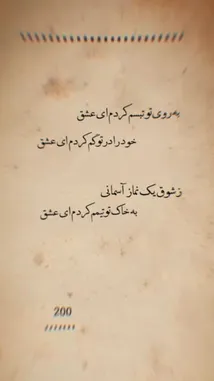 به روی تو تبسم کردم ای عشق
خود را در تو گم کردم ای عشق
ز شوق یک نماز آسمانی
به خاک تو تیمم کردم ای عشق
200